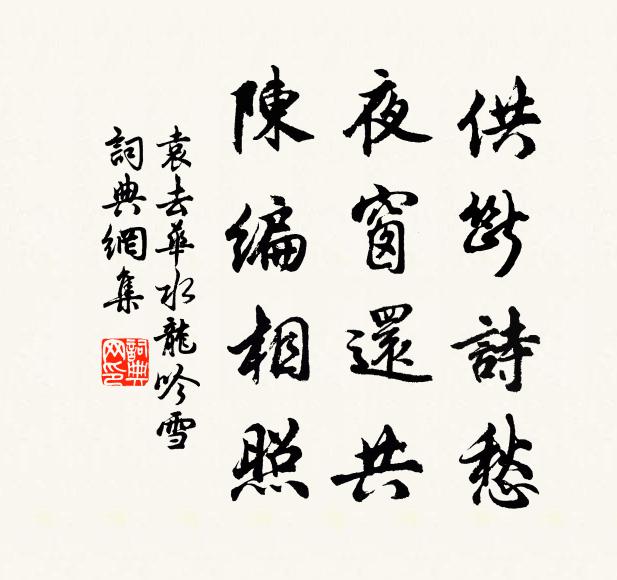 供斷詩愁
夜窗還共
陳編相照
袁去華水龍吟雪
詞典網集
詞典网印